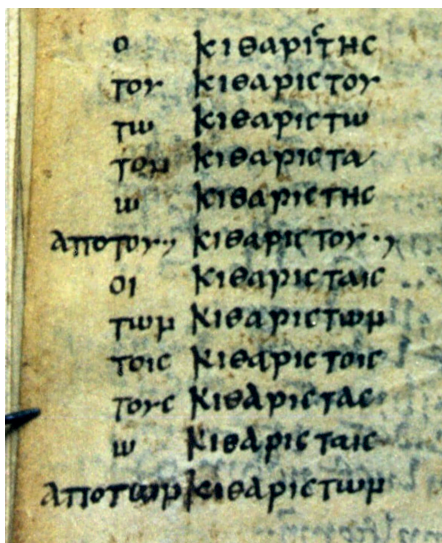 ο κιθαριcτηc
του κιθαριcτου
τω κιθαριcτω
τον κιθαριcτα
ω κιθαριcτηc
αποτου·, κιθαριcτου·,
οι κιθαριcταιc
των κιθαριcτων
τοιc κιθαριcτοιc
τουc κιθαριcταc
ω κιθαριcταιc
αποτων κιθαριcτων